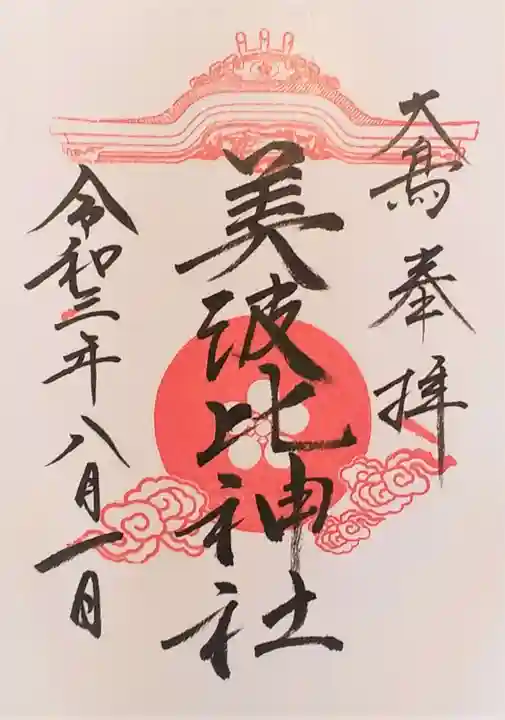 大鳥 奉拝
美波比神社
令和三年八月一日